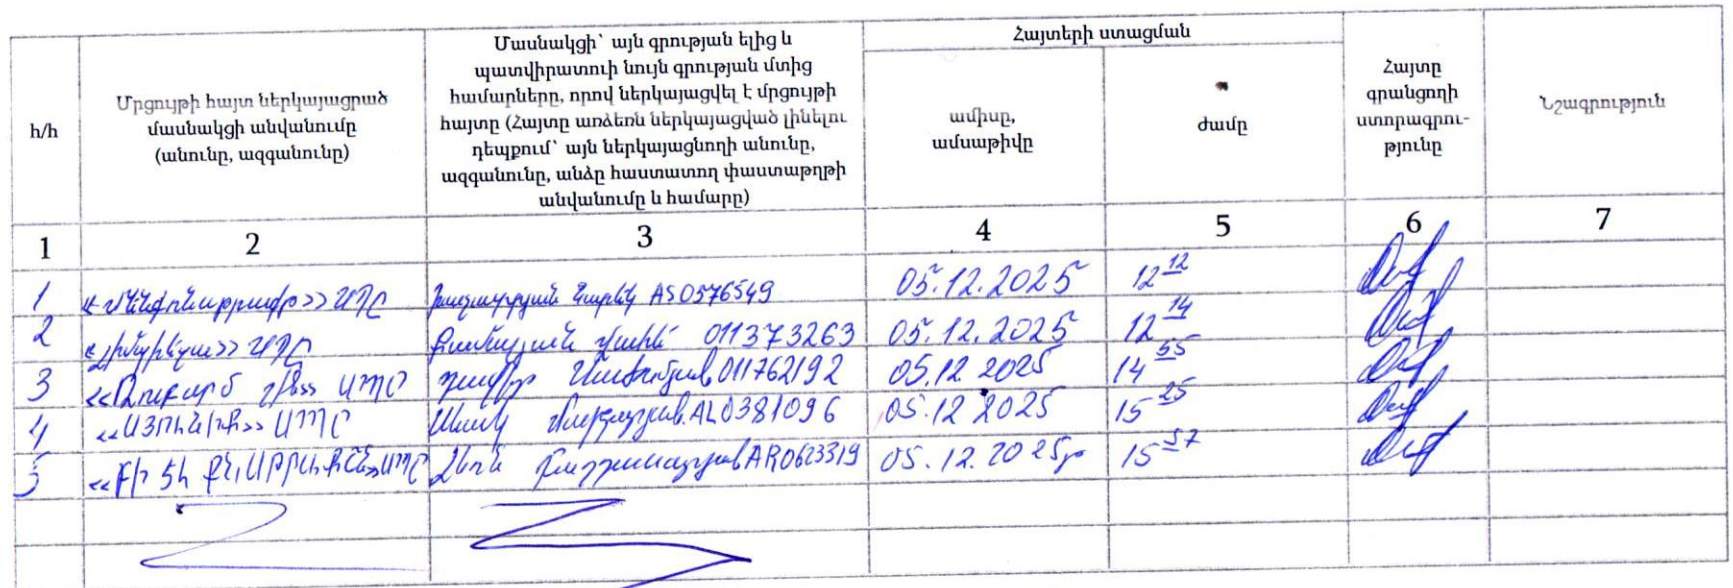 Հայտերի ստացման
հ/հ
Մրցույթի հայտ ներկայացրած
մասնակցի անվանումը
(անունը, ազգանունը)
Մասնակցի՝ այն գրության ելից և
պատվիրատուի նույն գրության մտից
համարները, որով ներկայացվել է մրցույթի
հայտը (Հայտը առձեռն ներկայացված լինելու
դեպքում՝ այն ներկայացնողի անունը,
ազգանունը, անձը հաստատող փաստաթղթի
անվանումը և համարը)
ամիսը,
ամսաթիվը
ժամը
Հայտը
գրանցողի
ստորագրու-
թյունը
Նշագրություն
1 2 3 4 5 6 7
1 ՍՊԸ Նարեկ AS0576549 05.12.2025 12 12
2 ՍՊԸ 011373263 05.12.2025 12 14
3 ՍՊԸ 011762192 05.12 2025 14 55
4 ՍՊԸ AL0381096 05.12 2025 15 25
5 ՍՊԸ AR0623319 05.12.2025թ 15 57